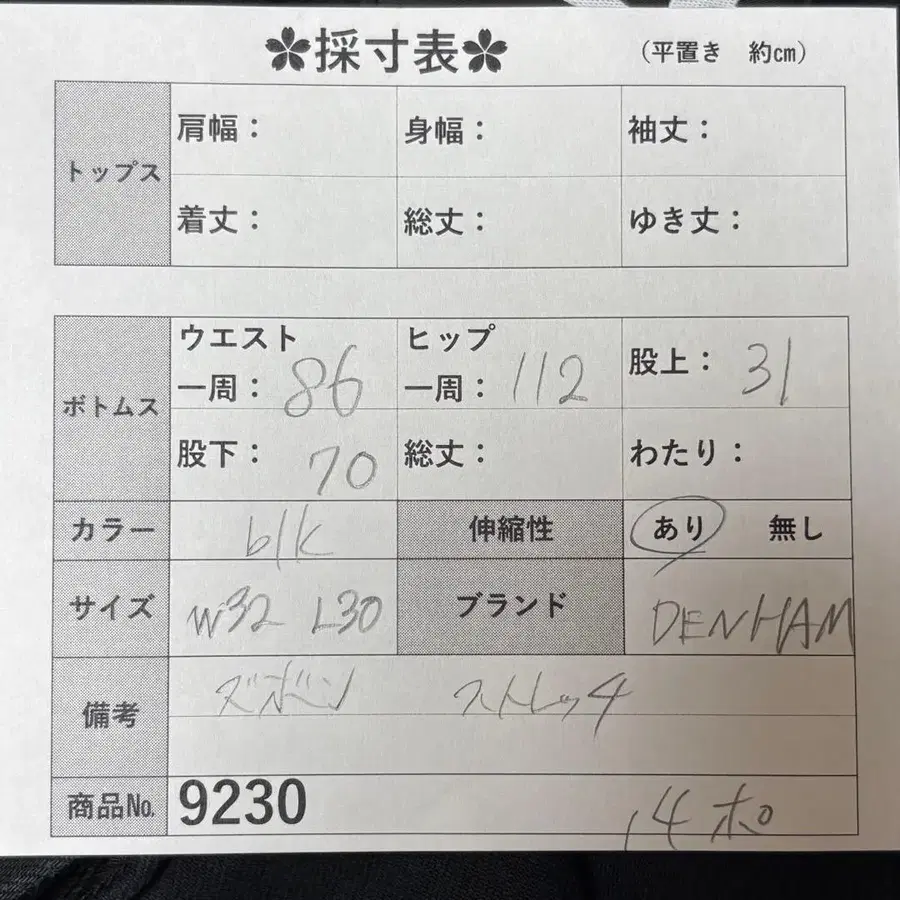 ✿採寸表✿ (平置き 約㎝)
トップス 肩幅： 身幅： 袖丈：
着丈： 総丈： ゆき丈：
ボトムス ウエスト一周：86 ヒップ一周：112 股上：31
股下：70 総丈： わたり：
カラー blk 伸縮性 あり 無し
サイズ W32 L30 ブランド DENHAM
備考 ズボン ストレッチ
商品№ 9230 14 ポ